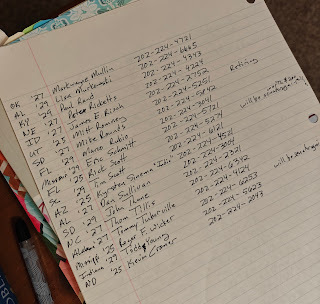 OK '27 Markwayne Mullin 202-224-4721
AL '29 Lisa Murkowski 202-224-6665
KY '29 Paul Rand 202-224-4343
NE '27 Pete Ricketts 202-224-4224
ID '27 James E Risch 202-224-2752
UT '25 Mitt Romney 202-224-5251 Retiring
SD '27 Mike Rounds 202-224-5842
FL '29 Marco Rubio 202-224-3041
'29 Eric Schmitt 202-224-5721
FL '25 Rick Scott 202-224-5274
SC '29 Tim Scott 202-224-6121
AZ '25 Kyrsten Sinema 202-224-4521
AL '27 Dan Sullivan 202-224-3004
SD '29 John Thune 202-224-2321
NC '27 Thom Tillis 202-224-6342
Alabama '27 Tommy Tuberville 202-224-4124
'25 Roger F. Wicker 202-224-6253
Indiana '29 Todd Young 202-224-5623
ND '25 Kevin Cramer 202-224-2043
will be
will be